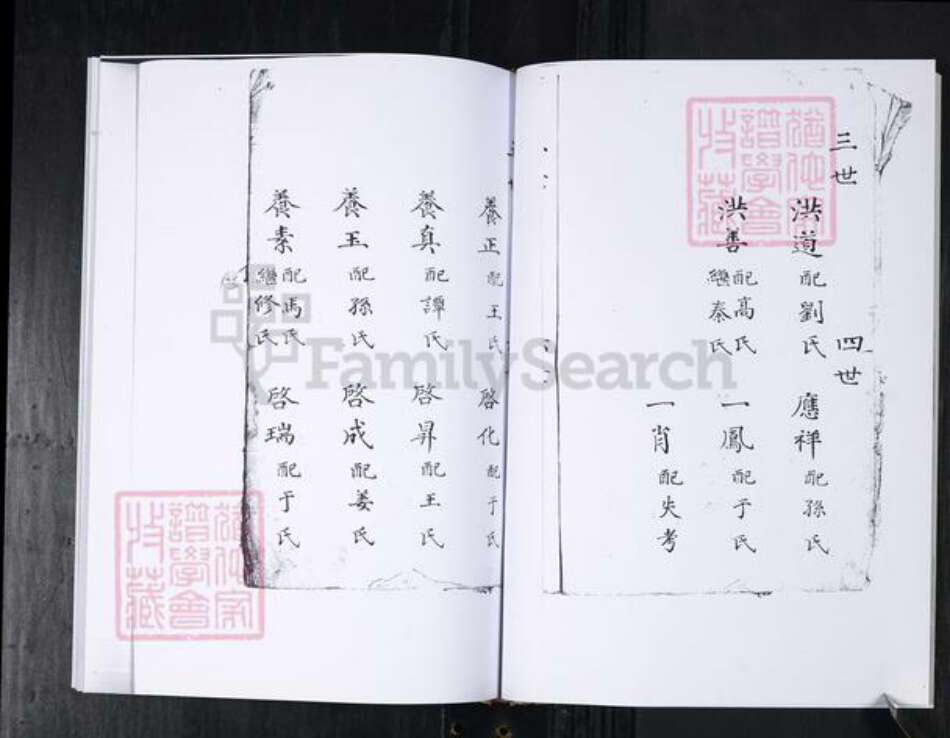 三世 四世
洪道 配劉氏 應祥 配孫氏
洪善 配高氏 繼秦氏 一鳳 配于氏
一肖 配失考
養正 配王氏 啓化 配于氏
養真 配譚氏 啓昇 配王氏
養玉 配孫氏 啓成 配姜氏
養素 配馬氏 繼修氏 啓瑞 配于氏
譜學會
收藏
譜學會
收藏
FamilySearch